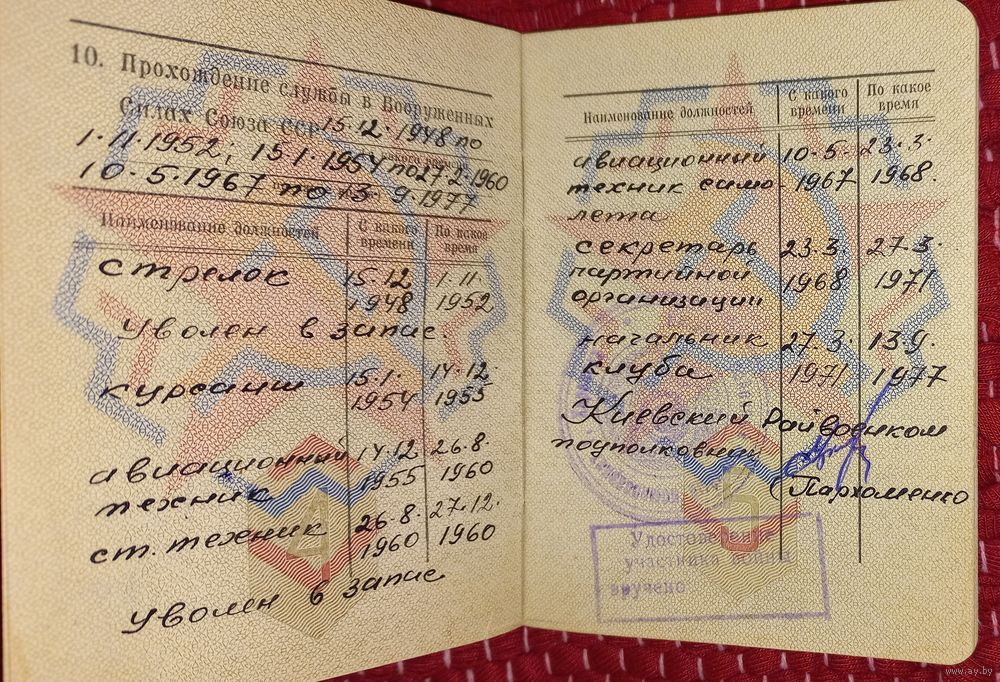 10. Прохождение службы в Вооруженных
Силах Союза ССР 15·12·1948 по
1·11·1952; 15·1·1954 по 27·2·1960
10·5·1967 по 13·9·1977
Наименование должностей С какого времени По какое время
стрелок 15·12 1948 1·11· 1952
Уволен в запас.
курсант 15·1· 1954 14·12· 1955
авиационный 14·12 1955 26·8· 1960
техник
ст. техник 26·8· 1960 27·12· 1960
Уволен в запас
Наименование должностей С какого времени По какое время
авиационный 10·5· 23·3·
техник само- 1967 1968·
лета
секретарь 23·3· 27·3·
партийной 1968 1971
организации
начальник 27·3· 13·9·
клуба 1971 1977
Киевский Райвоенком
подполковник
(Пархоменко
Удостоверение
участника войны
вручено
www.ay.by